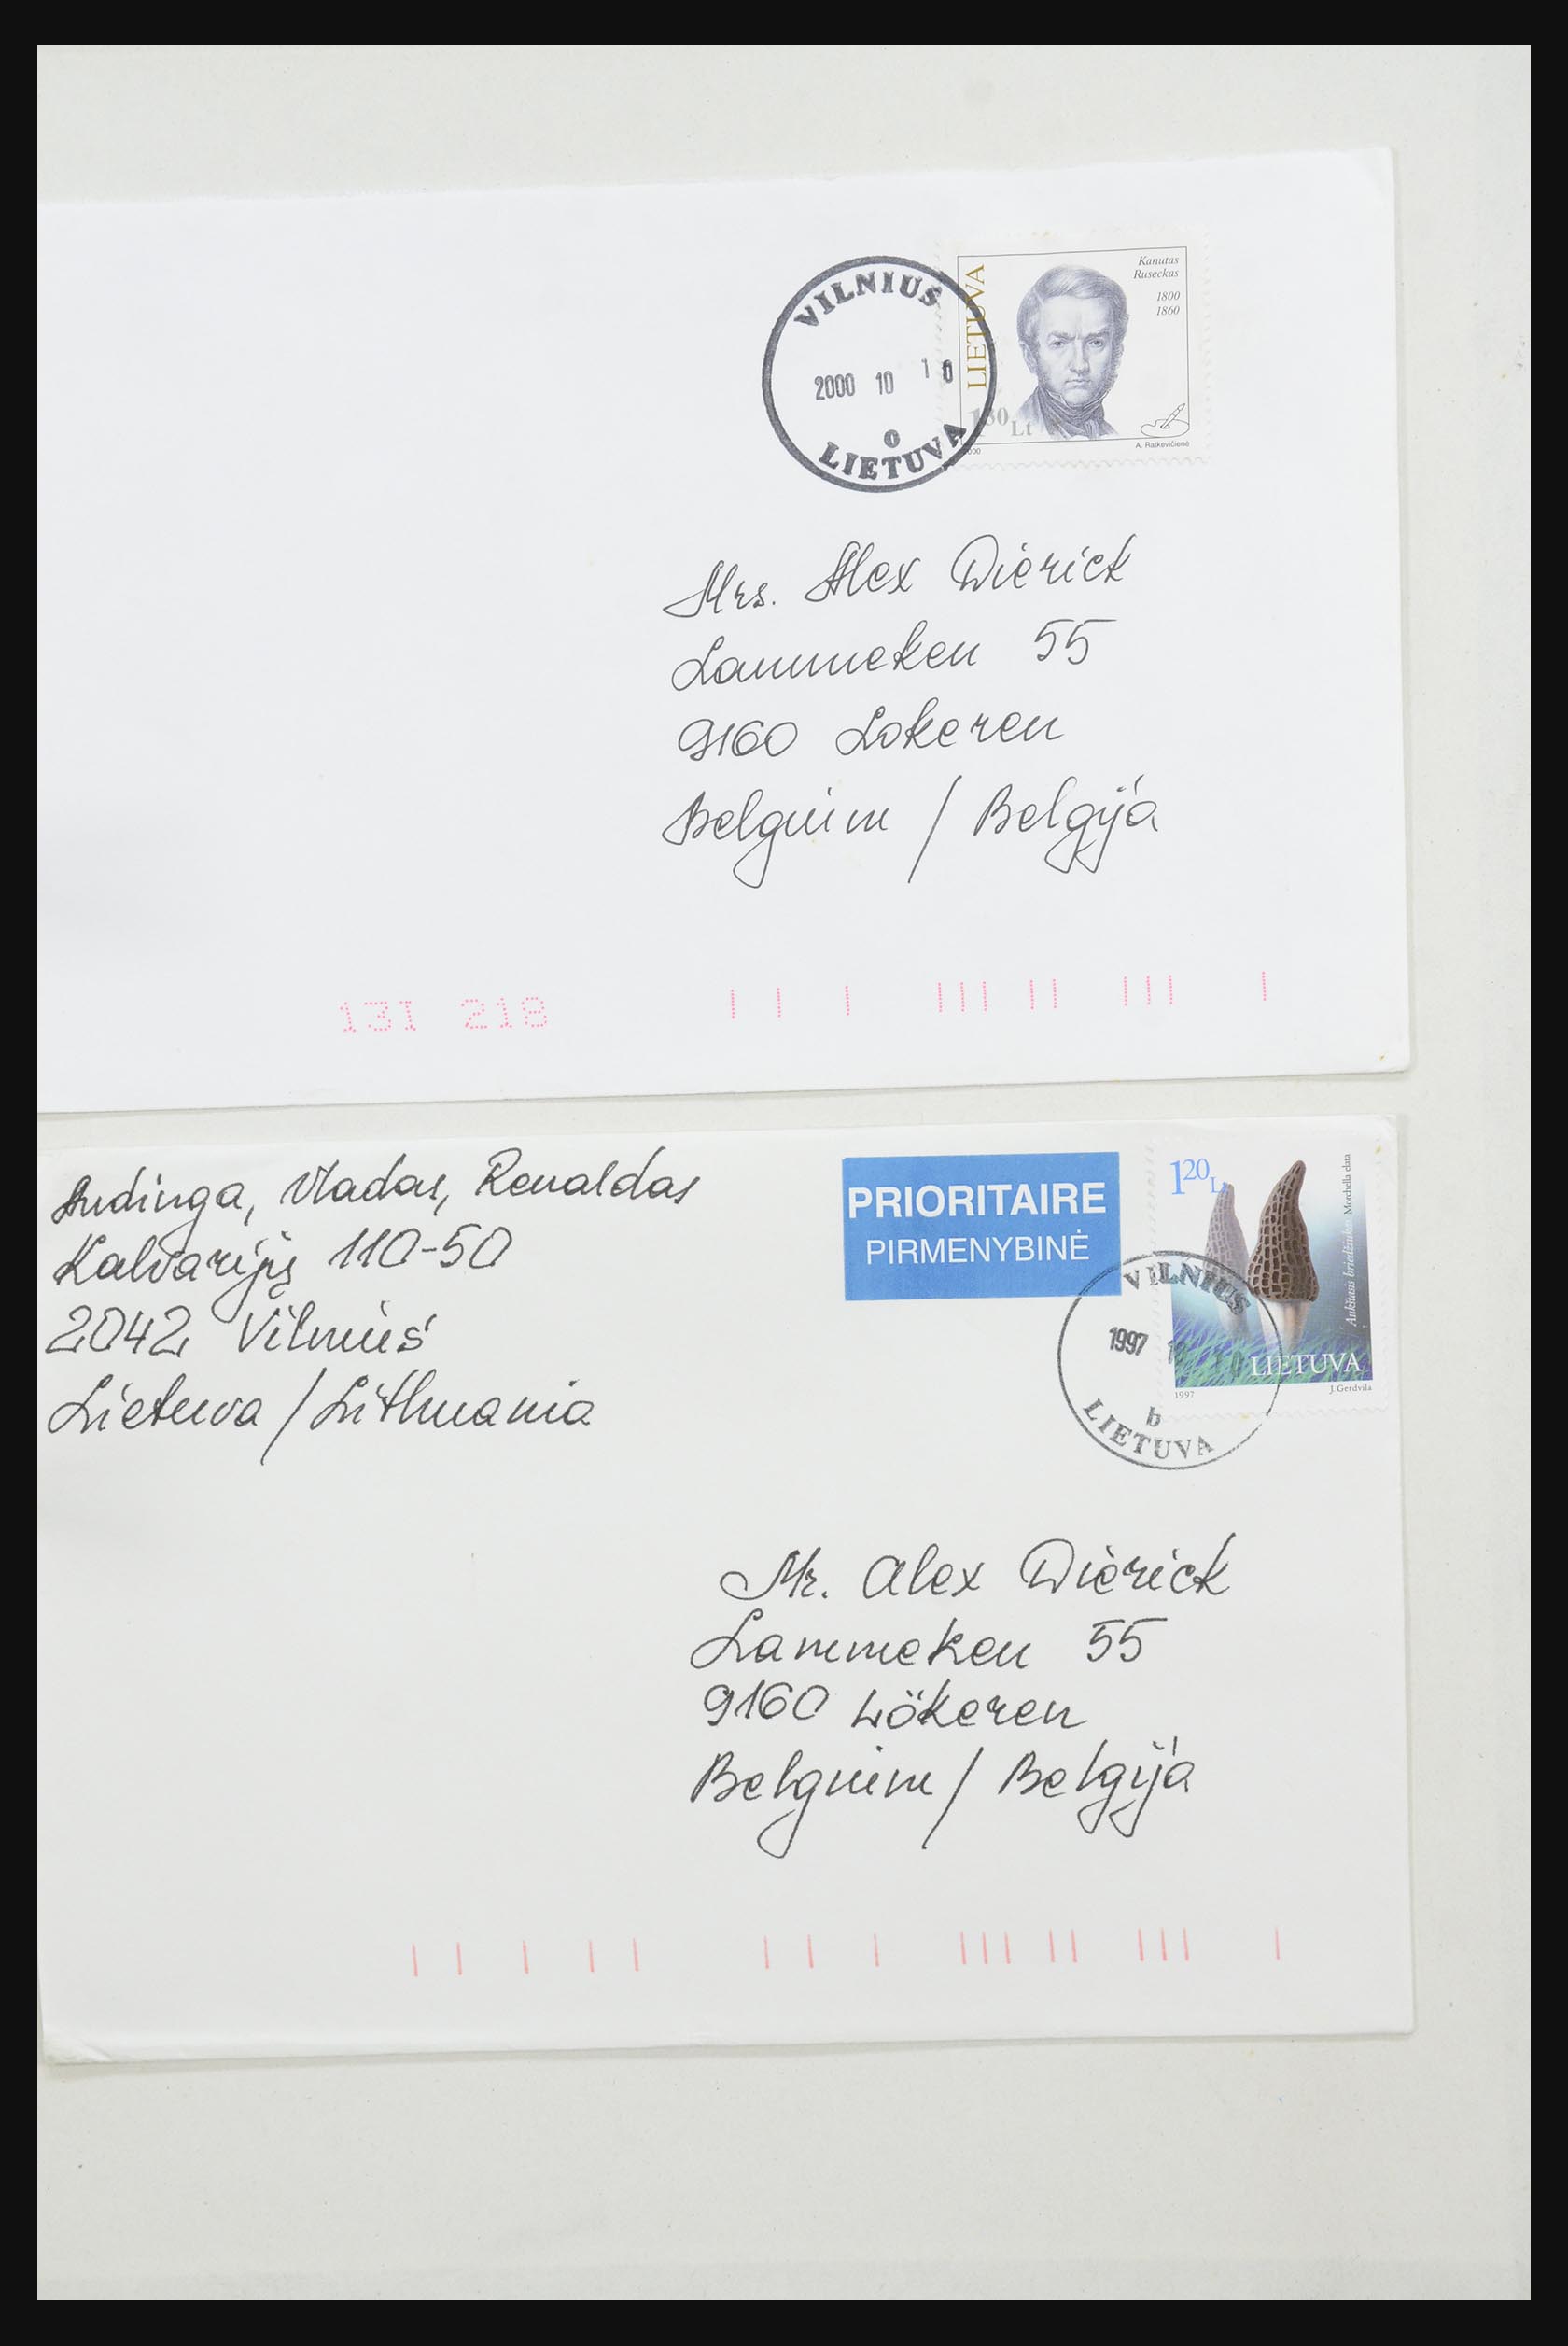 VILNIUS
2000 10 10
o
LIETUVA
LIETUVA
Kanutas
Ruseckas
1800
1860
Lt
A. Ratkevičienė
Mrs. Alex Dierick
Lammeken 55
9160 Lokeren
Belguim / Belgija
131 218
Andinga, Vladas, Renaldas
Kalvarijų 110-50
2042 Vilnius
Lietuva / Lithuania
PRIORITAIRE
PIRMENYBINĖ
1 20 Lt
Aukštasis briedžiukas Morchella elata
LIETUVA
1997
J. Gerdvila
VILNIUS
1997
b
LIETUVA
Mr. Alex Dierick
Lammeken 55
9160 Lökeren
Belguim / Belgija